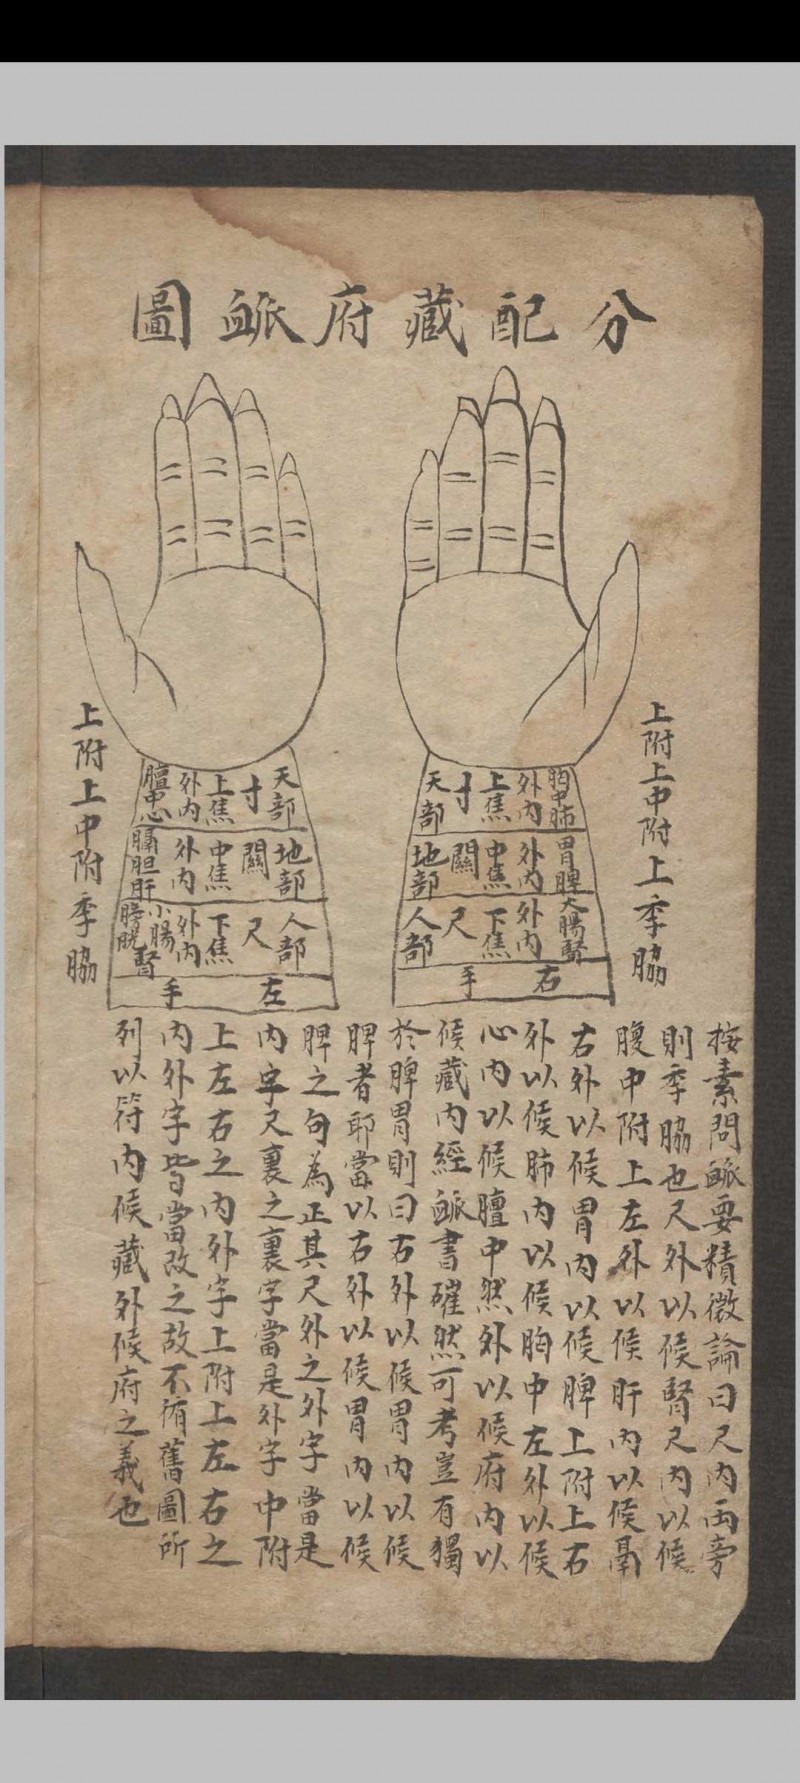 分配藏府脈圖
上附上中附上季脇
胸中肺
外内
上焦
寸
天部
胃脾
外内
中焦
關
地部
大腸腎
外内
下焦
尺
人部
右手
天部
寸
上焦
外内
膻中心
地部
關
中焦
外内
膈胆肝
人部
尺
下焦
外内
小腸
膀胱
腎
左手
上附上中附季脇
按素問脈要精微論曰尺内兩旁
則季脇也尺外以候腎尺内以候
腹中附上左外以候肝内以候鬲
右外以候胃内以候脾上附上右
外以候肺内以候胸中左外以候
心内以候膻中然外以候府内以
候藏内經脈書確然可考豈有獨
於脾胃則曰右外以候胃内以候
脾者耶當以右外以候胃内以候
脾之句為正其尺外之外字當是
内字尺裏之裏字當是外字中附
上左右之内外字上附上左右之
内外字皆當改之故不循舊圖所
列以符内候藏外候府之義也